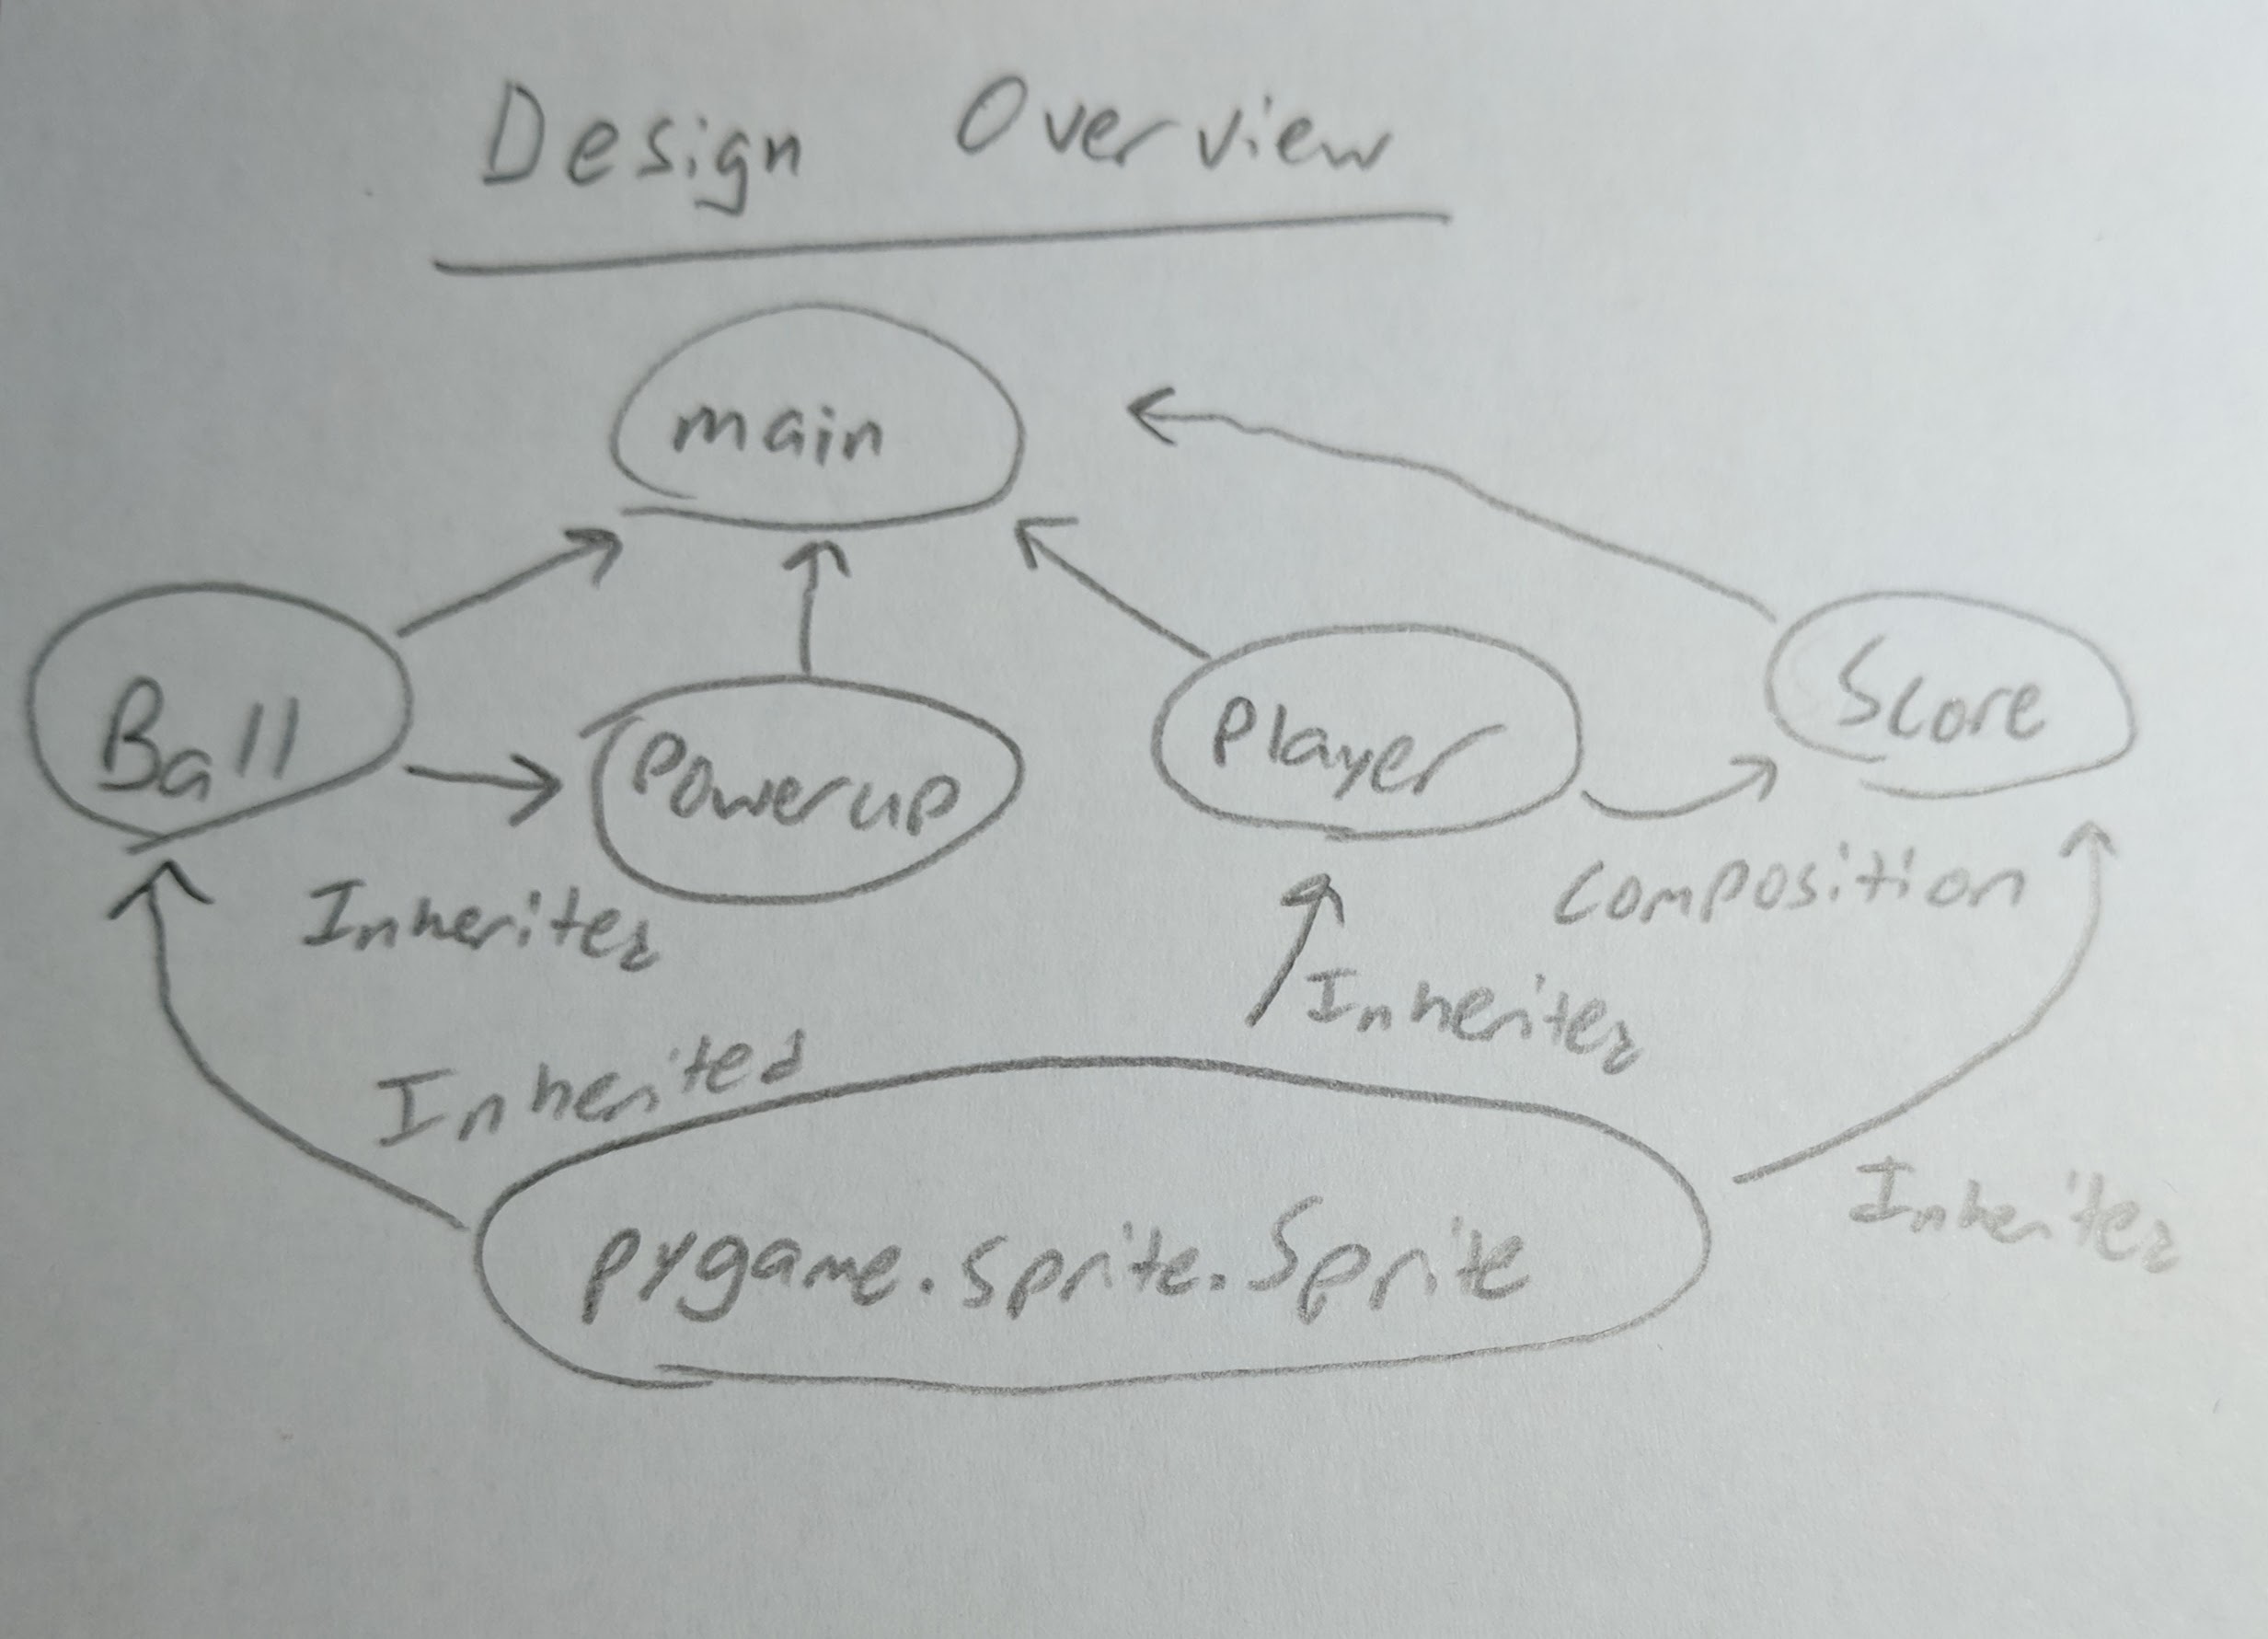 Design Overview
main
Ball
Powerup
Player
Score
Inherites
Composition
Inherites
Inherited
Inherites
pygame.sprite.Sprite